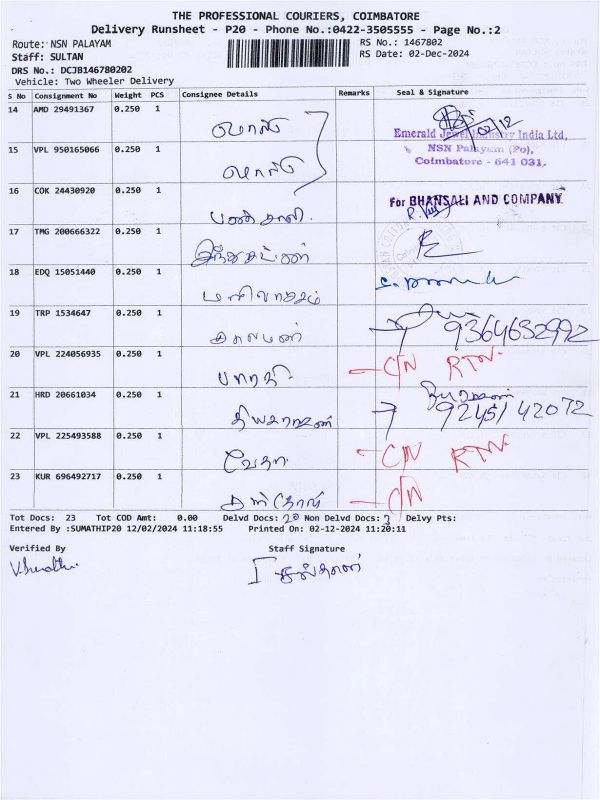 THE PROFESSIONAL COURIERS, COIMBATORE
Delivery Runsheet - P20 - Phone No.:0422-3505555 - Page No.:2
Route: NSN PALAYAM
RS No.: 1467802
Staff: SULTAN
RS Date: 02-Dec-2024
DRS No.: DCJB146780202
Vehicle: Two Wheeler Delivery
S No Consignment No Weight PCS Consignee Details Remarks Seal & Signature
14 AMD 29491367 0.250 1
Emerald Jewel Industry India Ltd,
15 VPL 950165066 0.250 1
NSN Palayam (Po),
Coimbatore - 641 031.
16 COK 24430920 0.250 1
For BHANSALI AND COMPANY
17 TMG 200666322 0.250 1
18 EDQ 15051440 0.250 1
19 TRP 1534647 0.250 1
9364652992
20 VPL 224056935 0.250 1
பாரதி C/N RTN.
21 HRD 20661034 0.250 1
தியாகராஜன் 9245142072
22 VPL 225493588 0.250 1
வேதா C/N RTN.
23 KUR 696492717 0.250 1
C/N
Tot Docs: 23 Tot COD Amt: 0.00 Delvd Docs: 20 Non Delvd Docs: 3 Delvy Pts:
Entered By :SUMATHIP20 12/02/2024 11:18:55 Printed On: 02-12-2024 11:20:11
Verified By Staff Signature